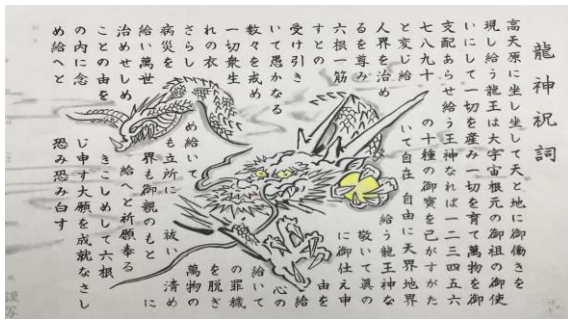 龍神祝詞
高天原に坐し坐して天と地に御働きを
現し給う龍王は大宇宙根元の御祖の御使
いにして一切を産み一切を育て萬物を御
支配あらせ給う王神なれば一二三四五六
七八九十 の十種の御寶を己がすがた
と変じ給 いて自在 自由に天界地界
人界を治め 給う龍王神な
るを尊み 敬いて真の
六根一筋 に御仕え申
すとの 由を
受け引き 給
いて愚かなる 心の
数々を戒め 給いて
一切衆生 の罪穢
れの衣 を脱ぎ
さらし め給いて 萬物の
病災を も立所に 祓い 清め
給い萬世 界も御親のもと に
治めせしめ 給へと祈願奉る
ことの由を きこしめして六根
の内に念 じ申す大願を成就なさし
め給へと 恐み恐み白す